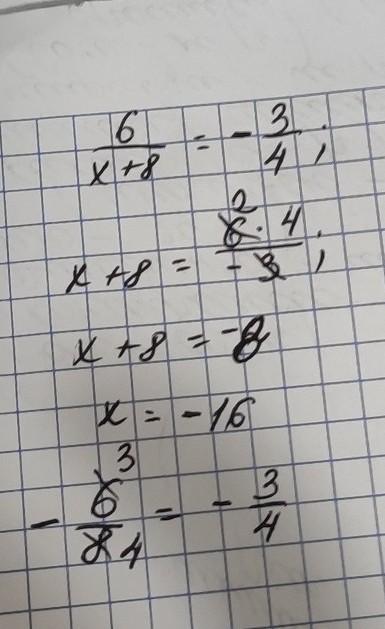 6/(x+8) = - 3/4;
x+8 = (6 · 4)/(-3); 2
x+8 = -8
x = -16
- 6/8 = - 3/4 3 4